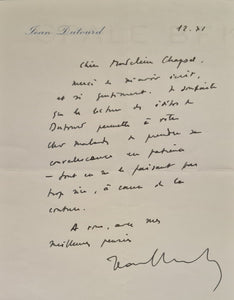 Jean Dutourd
12.XI
Chère Madeleine Chapsal
merci de m'avoir écrit,
et si gentiment. Je souhaite
que la lecture des idées de
Dutourd permette à votre
cher malade de prendre sa
convalescence en patience
— tout en ne le faisant pas
trop rire, à cause de la
couture.
A vous, avec mes
meilleures pensées
Jean Dutourd